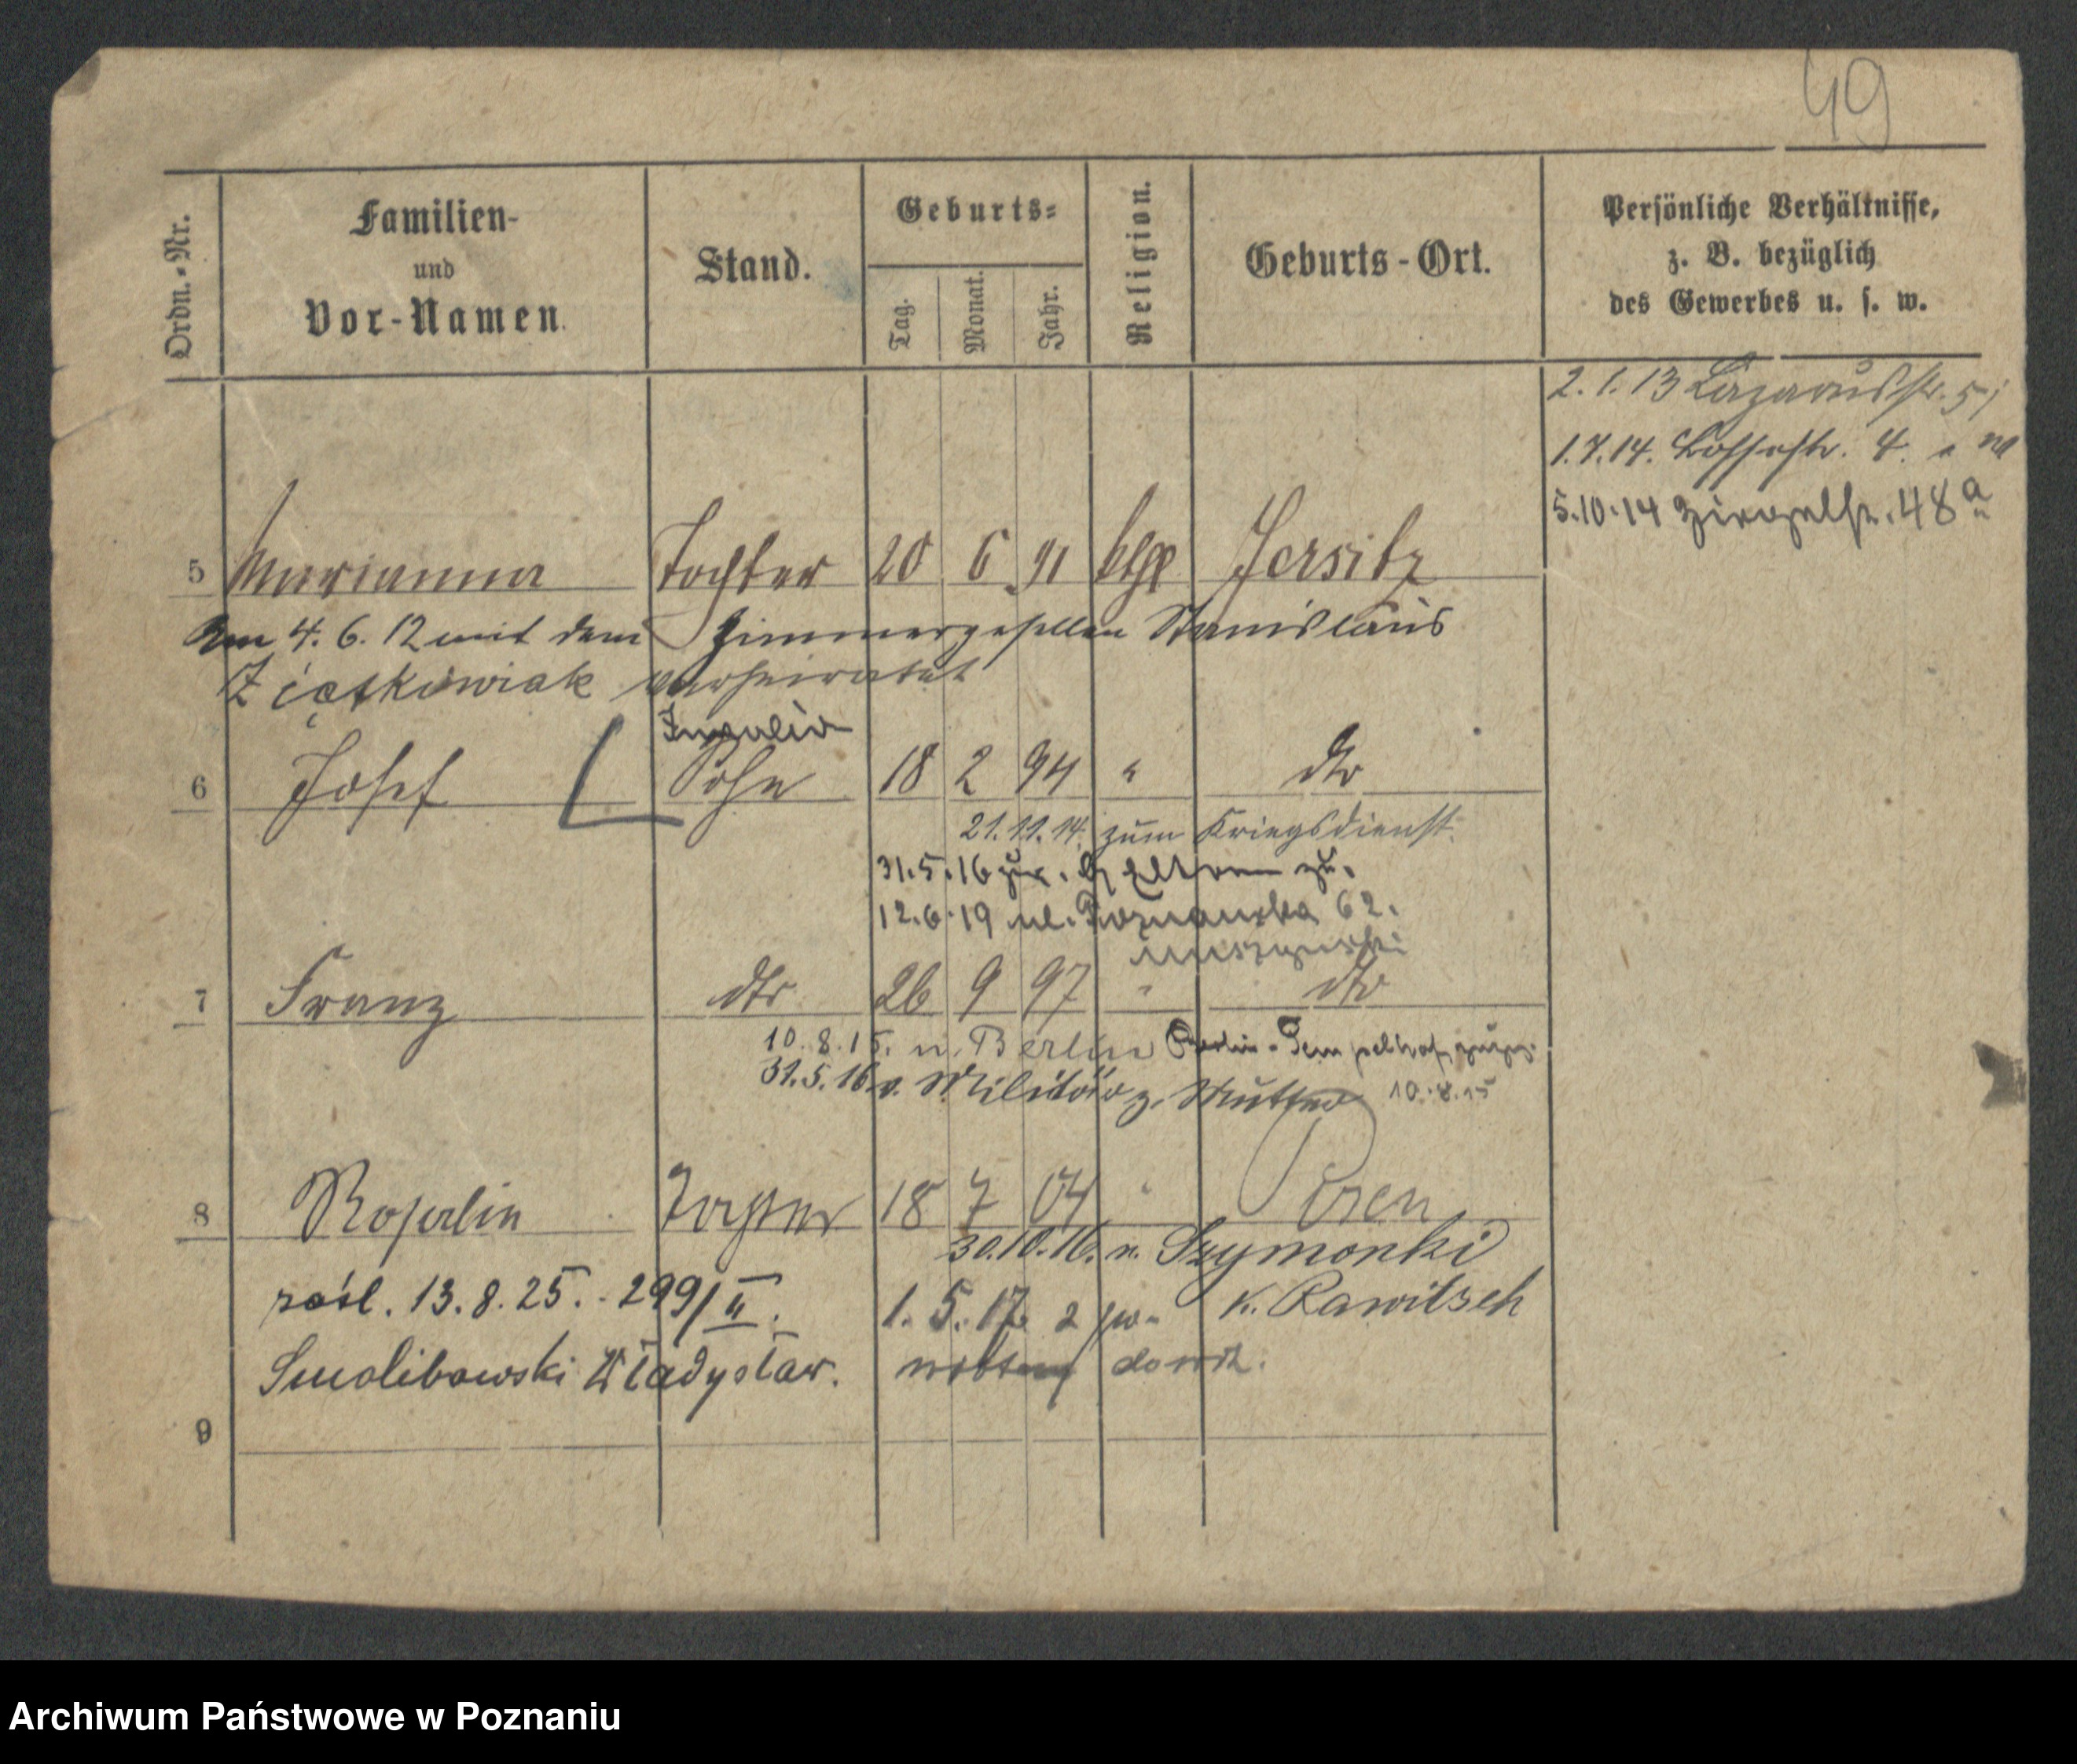 49
Ordn.-Nr.
Familien-
und
Vor-Namen.
Stand.
Geburts-
Tag.
Monat.
Jahr.
Religion.
Geburts-Ort.
Persönliche Verhältnisse,
z. B. bezüglich
des Gewerbes u. s. w.
2.1.13 Lazarusstr. 5
1.7.14. 4.
5.10.14 48a
5 Marianna Tochter 20 6 91 ktg Jersitz
Am 4. 6. 12 mit dem Zimmergesellen Stanislaus
Ziątkowiak verheiratet
Invalid
6 Josef Sohn 18 2 94 " dto
21.11.14. zum Kriegsdienst.
31.5.16 zur. Eltern zu.
12.6.19 ul. Poznańska 62.
7 Franz dto 26 9 97 " dto
10.8.15. n. Berlin Berlin-Tempelhof
31.5.16 v. Militär z. Mutter 10.8.15
8 Rosalie Tochter 18 7 04 " Posen
30.10.16. n. Szymonki
zaśl. 13.8.25. - 299/II. 1. 5. 17. k. Rawitsch
Smolibowski Władysław.
9
Archiwum Państwowe w Poznaniu